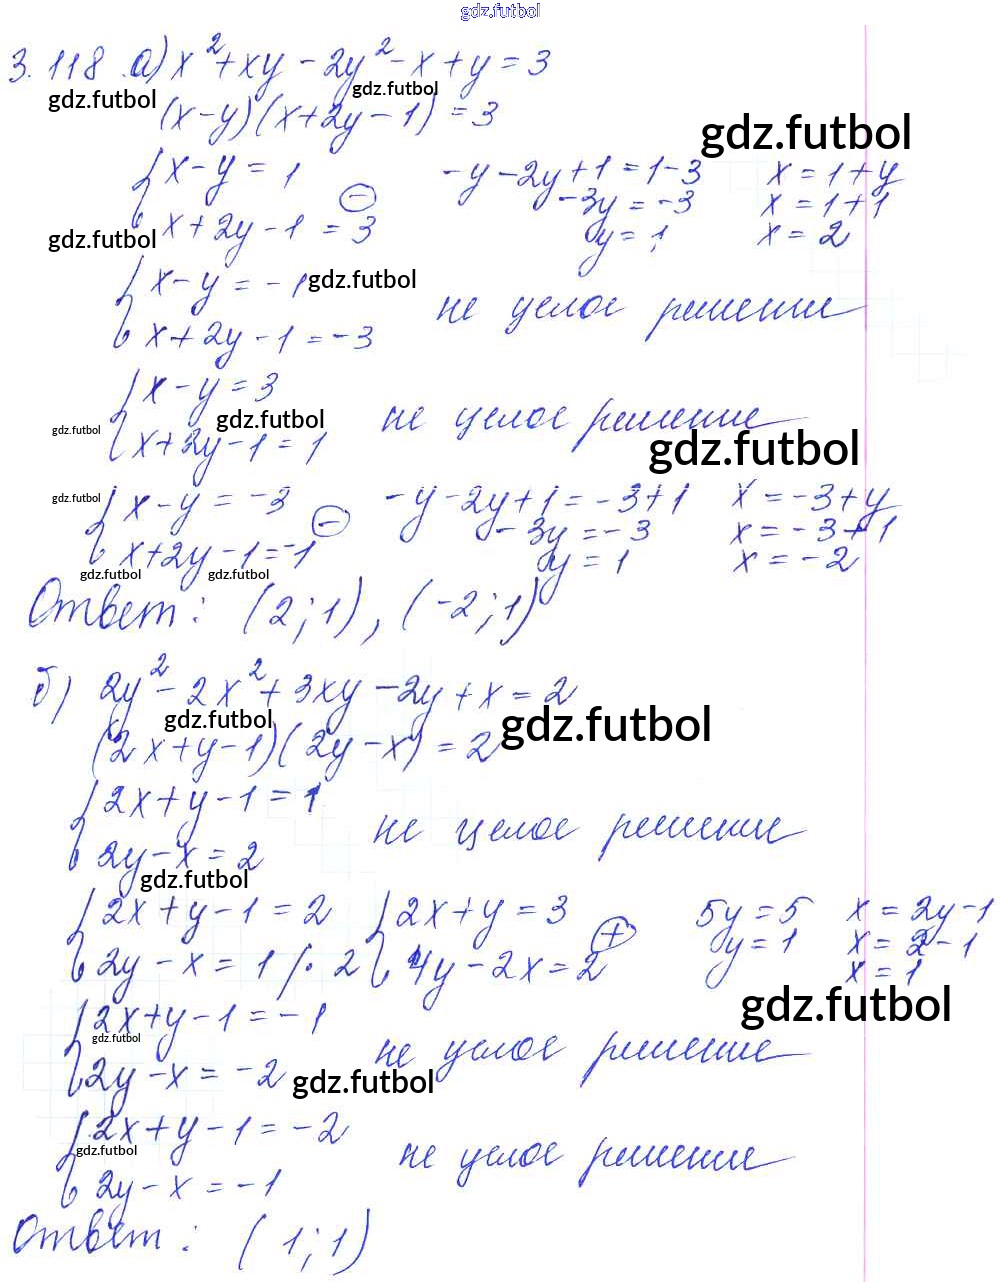 gdz.futbol
3.118 а) x²+xy-2y²-x+y=3
gdz.futbol gdz.futbol
(x-y)(x+2y-1)=3
gdz.futbol
{ x-y=1 ⊖ -y-2y+1=1-3 x=1+y
-3y=-3 x=1+1
x+2y-1=3 y=1 x=2
gdz.futbol
{ x-y=-1 gdz.futbol
не целое решение
x+2y-1=-3
{ x-y=3
gdz.futbol gdz.futbol не целое решение
x+2y-1=1 gdz.futbol
gdz.futbol { x-y=-3 ⊖ -y-2y+1=-3+1 x=-3+y
-3y=-3 x=-3+1
x+2y-1=-1 y=1 x=-2
gdz.futbol gdz.futbol
Ответ: (2;1), (-2;1)
б) 2y²-2x²+3xy-2y+x=2
gdz.futbol gdz.futbol
(2x+y-1)(2y-x)=2
{ 2x+y-1=1
не целое решение
2y-x=2
gdz.futbol
{ 2x+y-1=2 { 2x+y=3 ⊕ 5y=5 x=2y-1
y=1 x=2-1
2y-x=1 /·2 4y-2x=2 x=1
gdz.futbol
{ 2x+y-1=-1
gdz.futbol не целое решение
2y-x=-2 gdz.futbol
{ 2x+y-1=-2
gdz.futbol не целое решение
2y-x=-1
Ответ: (1;1)